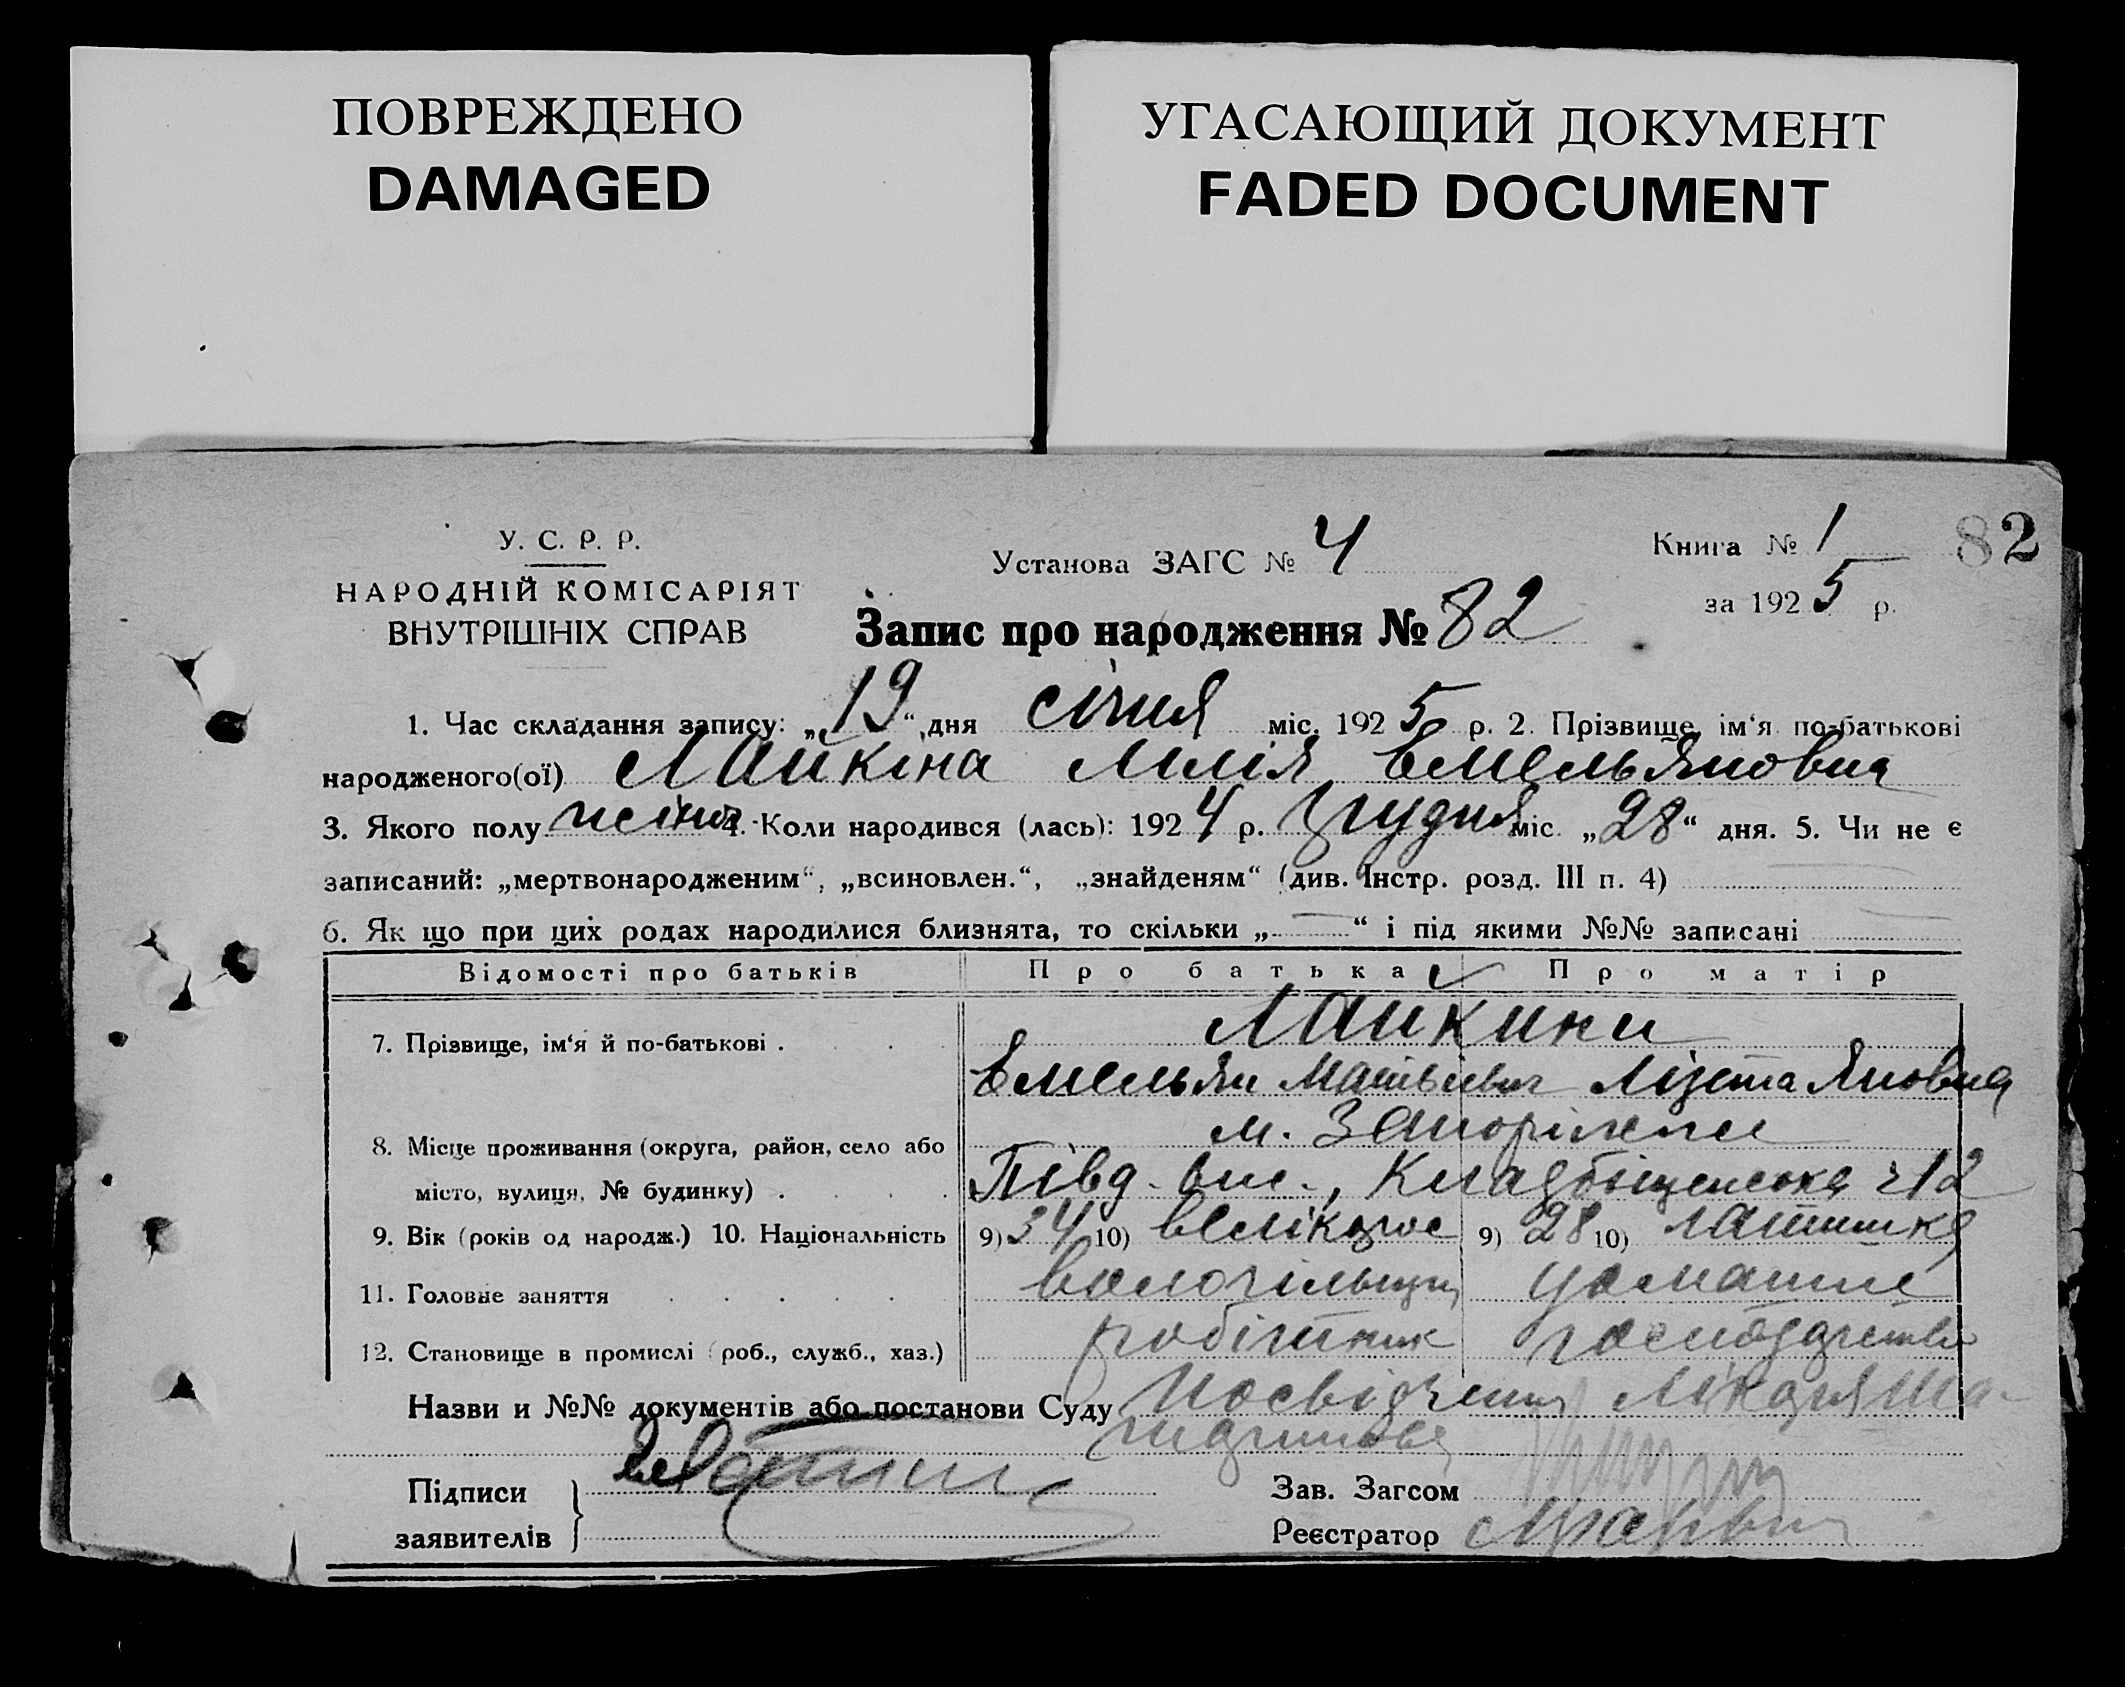 ПОВРЕЖДЕНО
DAMAGED
УГАСАЮЩИЙ ДОКУМЕНТ
FADED DOCUMENT
У. С. Р. Р.
НАРОДНІЙ КОМІСАРІЯТ
ВНУТРІШНІХ СПРАВ
Установа ЗАГС № 4
Книга № 1
82
за 1925 р.
Запис про народження № 82
1. Час складання запису: „19“ дня січня міс. 1925 р. 2. Прізвище, ім‘я по-батькові
народженого(ої) Лайкіна Лілія Емельяновна
3. Якого полу жіноч. 4. Коли народився (лась): 1924 р. грудня міс. „28“ дня. 5. Чи не є
записаний: „мертвонародженим“, „всиновлен.“, „знайденям“ (див. Інстр. розд. III п. 4)
6. Як що при цих родах народилися близнята, то скільки „—“ і під якими №№ записані
Відомості про батьків Про батька Про матір
7. Прізвище, ім‘я й по-батькові . Лайкини
Емельян Матвієвич Лізета Яновна
м. Запоріжжя
8. Місце проживання (округа, район, село або
місто, вулиця, № будинку) . Півд. сел., Кладбіщенська 12
9. Вік (років од народж.) 10. Національність 9) 34 10) великорос 9) 28 10) латишка
11. Головне заняття домашнє
12. Становище в промислі (роб., служб., хаз.) робітник господарство
Назви и №№ документів або постанови Суду Посвідчення Лікаря
Підписи
заявителів
Зав. Загсом
Реєстратор